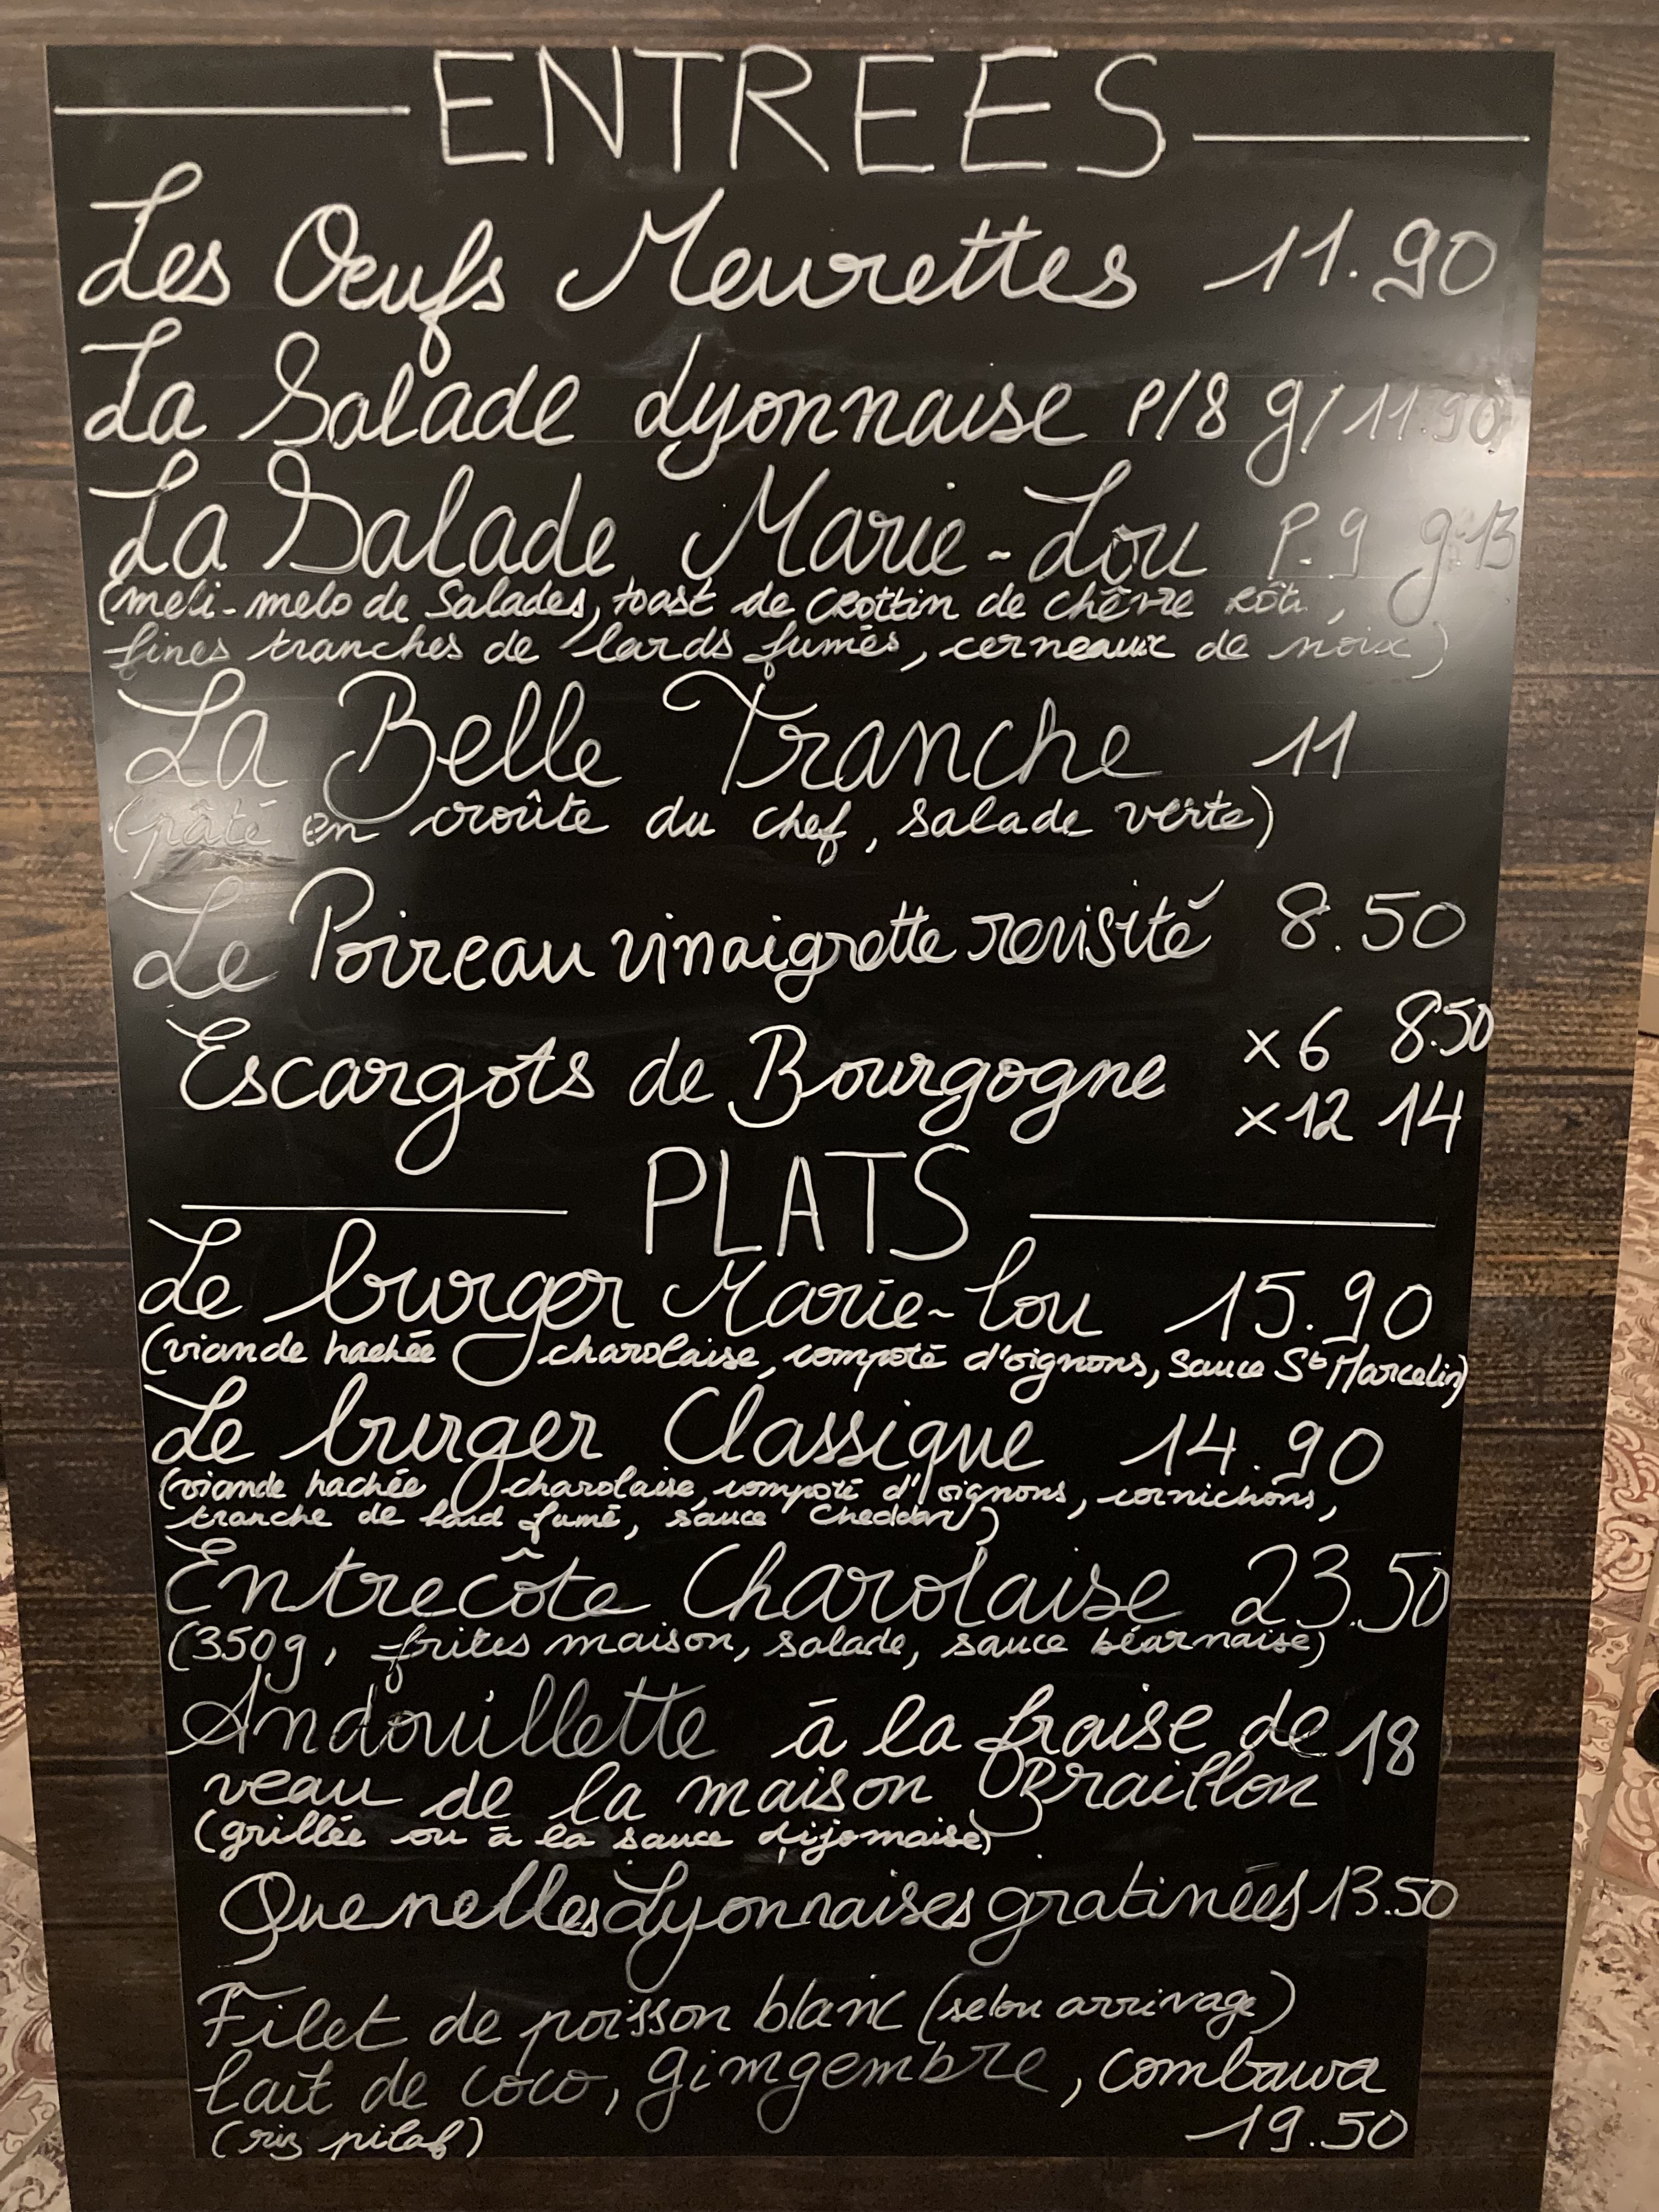 ENTREES
Les Oeufs Meurettes 11.90
La Salade Lyonnaise P/8 g/11.90
La Salade Marie-Lou P.9 g.13
(meli-melo de Salades, toast de crottin de chèvre rôti,
fines tranches de lards fumés, cerneaux de noix)
La Belle Tranche 11
(pâté en croûte du chef, salade verte)
Le Poireau vinaigrette revisité 8.50
Escargots de Bourgogne x6 8.50
x12 14
PLATS
Le burger Marie-lou 15.90
(viande hachée charolaise, compoté d'oignons, Sauce St Marcelin)
Le burger Classique 14.90
(viande hachée charolaise, compoté d'oignons, cornichons,
tranche de lard fumé, sauce Cheddar)
Entrecôte Charolaise 23.50
(350g, frites maison, salade, sauce béarnaise)
Andouillette à la fraise de 18
veau de la maison Braillon
(grillée ou à la sauce dijonnaise)
Quenelles Lyonnaises gratinées 13.50
Filet de poisson blanc (selon arrivage)
lait de coco, gimgembre, combawa
(riz pilaf) 19.50